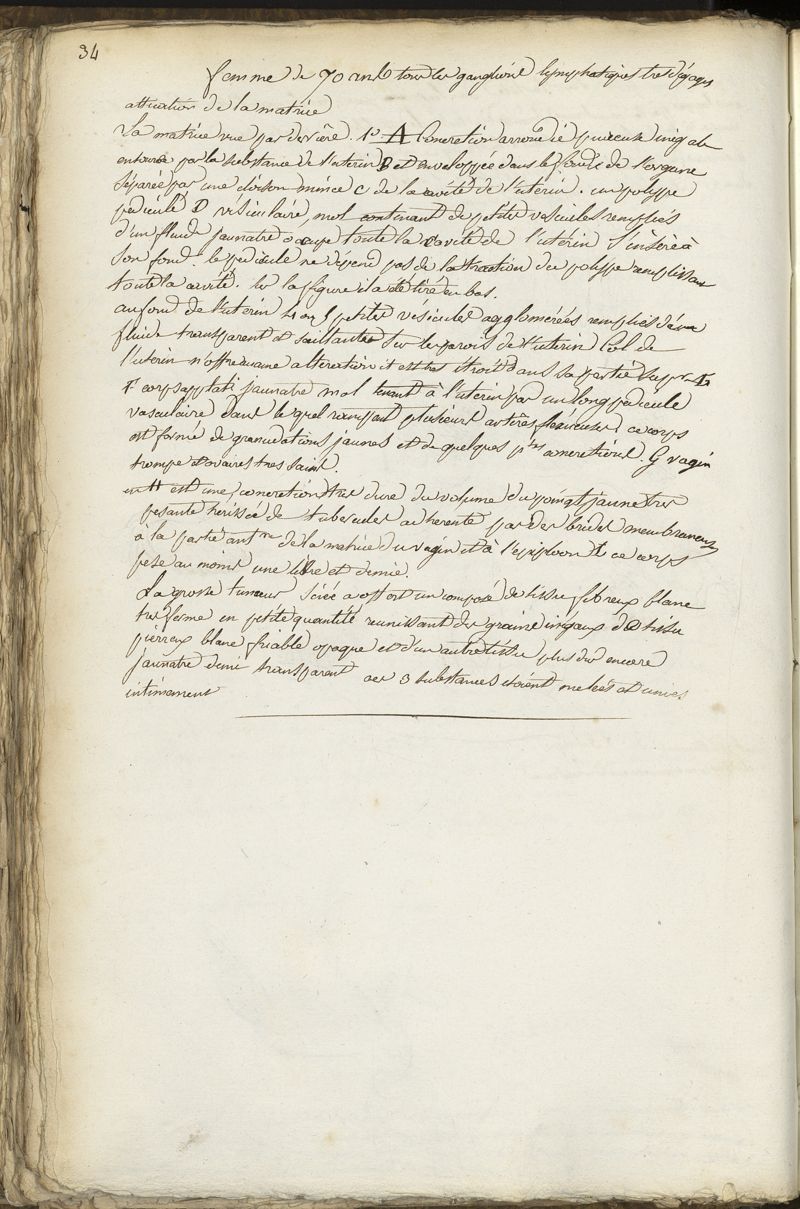 34
femme de 70 ans tous les ganglions lymphatiques tres
de la matrice
La matrice vue par derriere. 1° A Concretion arrondie pierreuse inégale
entourée par la substance de l'uterin B et enveloppée dans le fonds de l'organe
séparée par une cloison mince C de la cavité de l'utérin. un polype
pediculé D vésiculaire, mol contenant de petites vesicules remplies
d'un fluide jaunatre occupe toute la cavité de l'utérin s'insère à
son fond. le pedicule ne dépend pas de la traction du polype remplissant
toute la cavité. sur la figure il a été tiré en bas.
au fond de l'uterin 4 ou 5 petites vésicules agglomérées remplies d'un
fluide transparent et saillantes sur les parois de l'uterin Col de
l'uterin n'offre aucune alteration il est tres étroit dans sa partie supre E
F corps applati jaunatre mol tenant à l'uterin par un long pedicule
vasculaire dans le quel rampent plusieurs artères flexueuses; ce corps
est formé de granulations jaunes et de quelques ptes concretions. G vagin
trompe et ovaires tres sains.
en H est une concretion tres dure du volume du poingt jaune tres
pesante herissée de tubercules adherente par des brides membraneuses
a la partie antre de la matrice du vagin et à l'epiploon I ce corps
pese au moins une libre et demie.
La grosse tumeur sciée a offert un composé de tissu fibreux blanc
tres ferme en petite quantité reunissant des grains inegaux de tissu
pierreux blanc friable opaque et d'un autre tissu plus dur encore
jaunatre demi transparent ces 3 substances etoient melées et unies
intimement